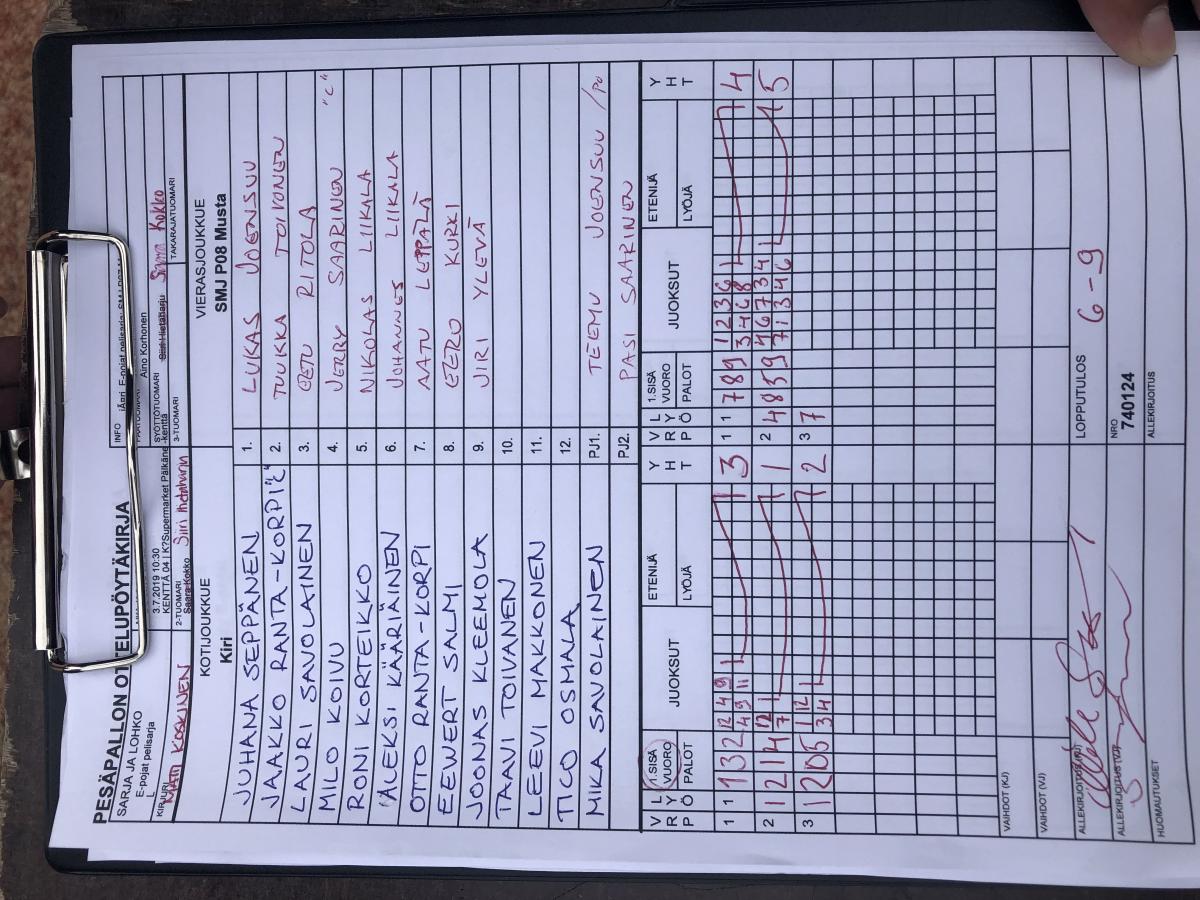 PESÄPALLON OTTELUPÖYTÄKIRJA
SARJA JA LOHKO
E-pojat pelisarja
L
3.7.2019 10:30
KENTTÄ 04 | K?Supermarket Pälkäne -kenttä
INFO
Aino Korhonen
KIRJURI
MATTI KOSKINEN
2-TUOMARI
Saara Kokko
Siiri Hietaharju
SYÖTTÖTUOMARI
3-TUOMARI
Siiri Hietaharju
Saara Kokko
TAKARAJATUOMARI
KOTIJOUKKUE
Kiri
VIERASJOUKKUE
SMJ P08 Musta
JUHANA SEPPÄNEN 1. LUKAS JOENSUU
JAAKKO RANTA-KORPI "C" 2. TUUKKA TOIVONEN
LAURI SAVOLAINEN 3. EETU RITOLA
MILO KOIVU 4. JERRY SAARINEN "C"
RONI KORTEIKKO 5. NIKOLAS LIIKALA
ALEKSI KÄÄRIÄINEN 6. JOHANNES LIIKALA
OTTO RANTA-KORPI 7. AATU LEPPÄLÄ
EEWERT SALMI 8. EERO KURKI
JOONAS KLEEMOLA 9. JIRI YLEVÄ
TAAVI TOIVANEN 10.
LEEVI MAKKONEN 11.
TICO OSMALA 12.
MIKA SAVOLAINEN PJ1. TEEMU JOENSUU
PJ2. PASI SAARINEN
V R P L Y Ö 1.SISÄ VUORO PALOT JUOKSUT ETENIJÄ LYÖJÄ Y H T V R P L Y Ö 1.SISÄ VUORO PALOT JUOKSUT ETENIJÄ LYÖJÄ Y H T
1 1 1 3 2 12 4 9 3 1 1 7 8 9 1 2 3 6 4
4 9 11 3 4 6 8
2 1 2 1 4 12 1 2 4 8 5 9 4 6 7 3 4 5
7 7 1 3 4 6
3 1 2 0 5 1 12 2 3 7
3 4
VAIHDOT (KJ)
VAIHDOT (VJ)
ALLEKIRJOITUS (KJ)
LOPPUTULOS
6 - 9
ALLEKIRJOITUS (VJ)
NRO
740124
HUOMAUTUKSET
ALLEKIRJOITUS